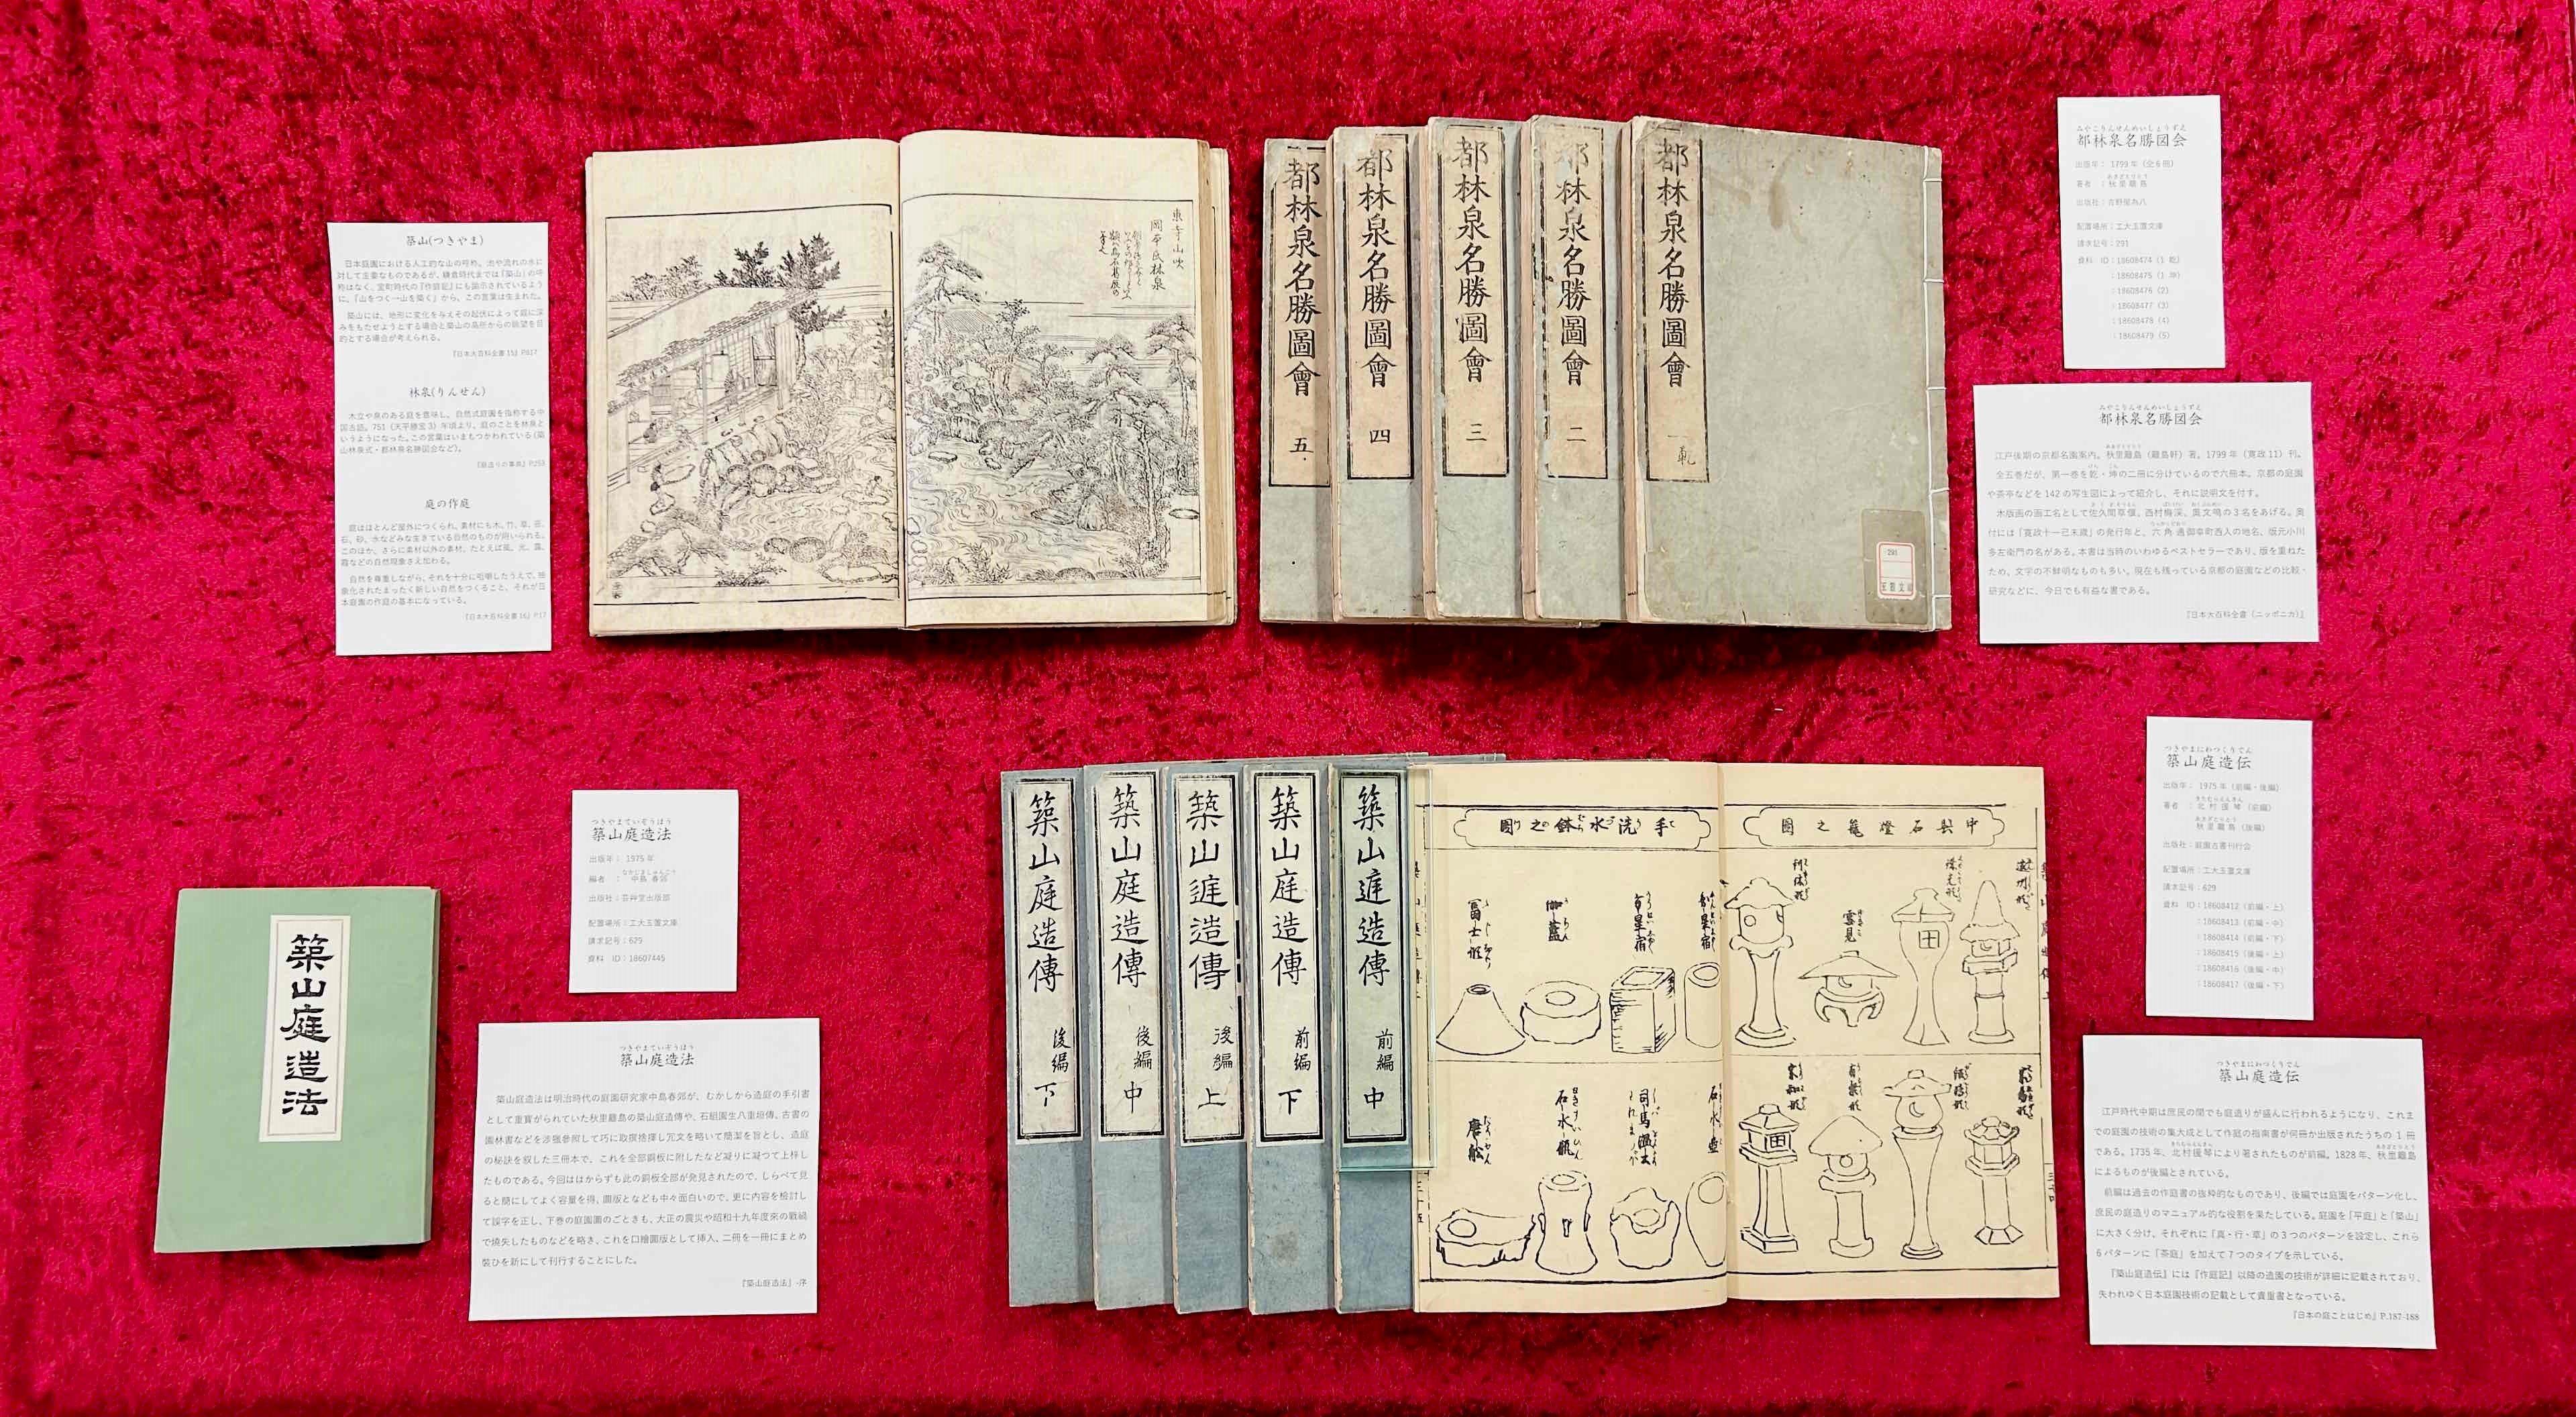 築山(つきやま)
日本庭園における人工的な山の呼称。池や流れの水に
対して主要なものであるが、鎌倉時代までは「築山」の呼
称はなく、室町時代の『作庭記』にも図示されているよう
に、「山をつく→山を築く」から、この言葉は生まれた。
築山には、地形に変化を与えその起伏によって庭に深
みをもたせようとする場合と築山の高所からの眺望を目
的とする場合が考えられる。
『日本大百科全書 15』P.817
林泉(りんせん)
木立や泉のある庭を意味し、自然式庭園を指称する中
国古語。751(天平勝宝3)年頃より、庭のことを林泉と
いうようになった。この言葉はいまもつかわれている(築
山林泉式・都林泉名勝図会など)。
『庭造りの事典』P.258
庭の作庭
庭はほとんど屋外につくられ、素材にも木、竹、草、苔、
石、砂、水などみな生きている自然のものが用いられる。
このほか、さらに素材以外の素材、たとえば風、光、露、
霜などの自然現象さえ加わる。
自然を尊重しながら、それを十分に咀嚼したうえで、抽
象化されたまったく新しい自然をつくること、それが日
本庭園の作庭の基本になっている。
『日本大百科全書 16』P.17
東寺山吹
岡本氏林泉
都林泉名勝圖會 五
都林泉名勝圖會 四
都林泉名勝圖會 三
都林泉名勝圖會 二
都林泉名勝圖會 一乾
291
玉置文庫
みやこりんせんめいしょうずえ
都林泉名勝図会
出版年: 1799年(全6冊)
あきざとりとう
著者 :秋里籬島
出版社:吉野屋為八
配置場所:工大玉置文庫
請求記号:291
資料 ID:18608474(1 乾)
:18608475(1 坤)
:18608476(2)
:18608477(3)
:18608478(4)
:18608479(5)
みやこりんせんめいしょうずえ
都林泉名勝図会
あきざとりとう
江戸後期の京都名園案内。秋里籬島(籬島軒)著。1799年(寛政11)刊。
けん こん
全五巻だが、第一巻を乾・坤の二冊に分けているので六冊本。京都の庭園
や茶亭などを142の写生図によって紹介し、それに説明文を付す。
木版画の画工名として佐久間草偃、西村梅渓、奥文鳴の3名をあげる。奥
付には「寛政十一己未歳」の発行年と、六角通御幸町西入の地名、版元小川
多左衛門の名がある。本書は当時のいわゆるベストセラーであり、版を重ねた
ため、文字の不鮮明なものも多い。現在も残っている京都の庭園などの比較・
研究などに、今日でも有益な書である。
『日本大百科全書(ニッポニカ)』
築山庭造法
つきやまていぞうほう
築山庭造法
出版年: 1975年
なかじましゅんこう
編者 : 中島 春郊
出版社:芸艸堂出版部
配置場所:工大玉置文庫
請求記号:629
資料 ID:18607445
つきやまていぞうほう
築山庭造法
築山庭造法は明治時代の庭園研究家中島春郊が、むかしから造庭の手引書
として重寶がられていた秋里籬島の築山庭造傳や、石組園生八重垣傳、古書の
園林書などを渉猟参照して巧に取撰捨擇し冗文を略いて簡潔を旨とし、造庭
の秘訣を叙した三冊本で、これを全部銅板に附したなど凝りに凝つて上梓し
たものである。今回ははからずも此の銅板全部が発見されたので、しらべて見
ると簡にしてよく容量を得、圖版となども中々面白いので、更に内容を検討し
て誤字を正し、下巻の庭園圖のごときも、大正の震災や昭和十九年度來の戰禍
で燒失したものなどを略き、これを口繪圖版として挿入、二冊を一冊にまとめ
裝ひを新にして刊行することにした。
『築山庭造法』-序
築山庭造傳 後編 下
築山庭造傳 後編 中
築山庭造傳 後編 上
築山庭造傳 前編 下
築山庭造傳 前編 中
手洗水鉢之圖
中興石燈籠之圖
利休形
雪見
珠光形
遠州形
冨士形
伽藍
石水瓶
司馬温公
唐船
つきやまにわつくりでん
築山庭造伝
出版年: 1975年(前編・後編)
きたむらえんきん
著者 :北村援琴(前編)
あきざとりとう
秋里籬島(後編)
出版社:庭園古書刊行会
配置場所:工大玉置文庫
請求記号:629
資料 ID:18608412(前編・上)
:18608413(前編・中)
:18608414(前編・下)
:18608415(後編・上)
:18608416(後編・中)
:18608417(後編・下)
つきやまにわつくりでん
築山庭造伝
江戸時代中期は庶民の間でも庭造りが盛んに行われるようになり、これま
での庭園の技術の集大成として作庭の指南書が何冊か出版されたうちの1冊
きたむらえんきん あきざとりとう
である。1735年、北村援琴により著されたものが前編。1828年、秋里籬島
によるものが後編とされている。
前編は過去の作庭書の抜粋的なものであり、後編では庭園をパターン化し、
庶民の庭造りのマニュアル的な役割を果たしている。庭園を「平庭」と「築山」
に大きく分け、それぞれに「真・行・草」の3つのパターンを設定し、これら
6パターンに「茶庭」を加えて7つのタイプを示している。
『築山庭造伝』には『作庭記』以降の造園の技術が詳細に記載されており、
失われゆく日本庭園技術の記載として貴重書となっている。
『日本の庭ことはじめ』P.187-188